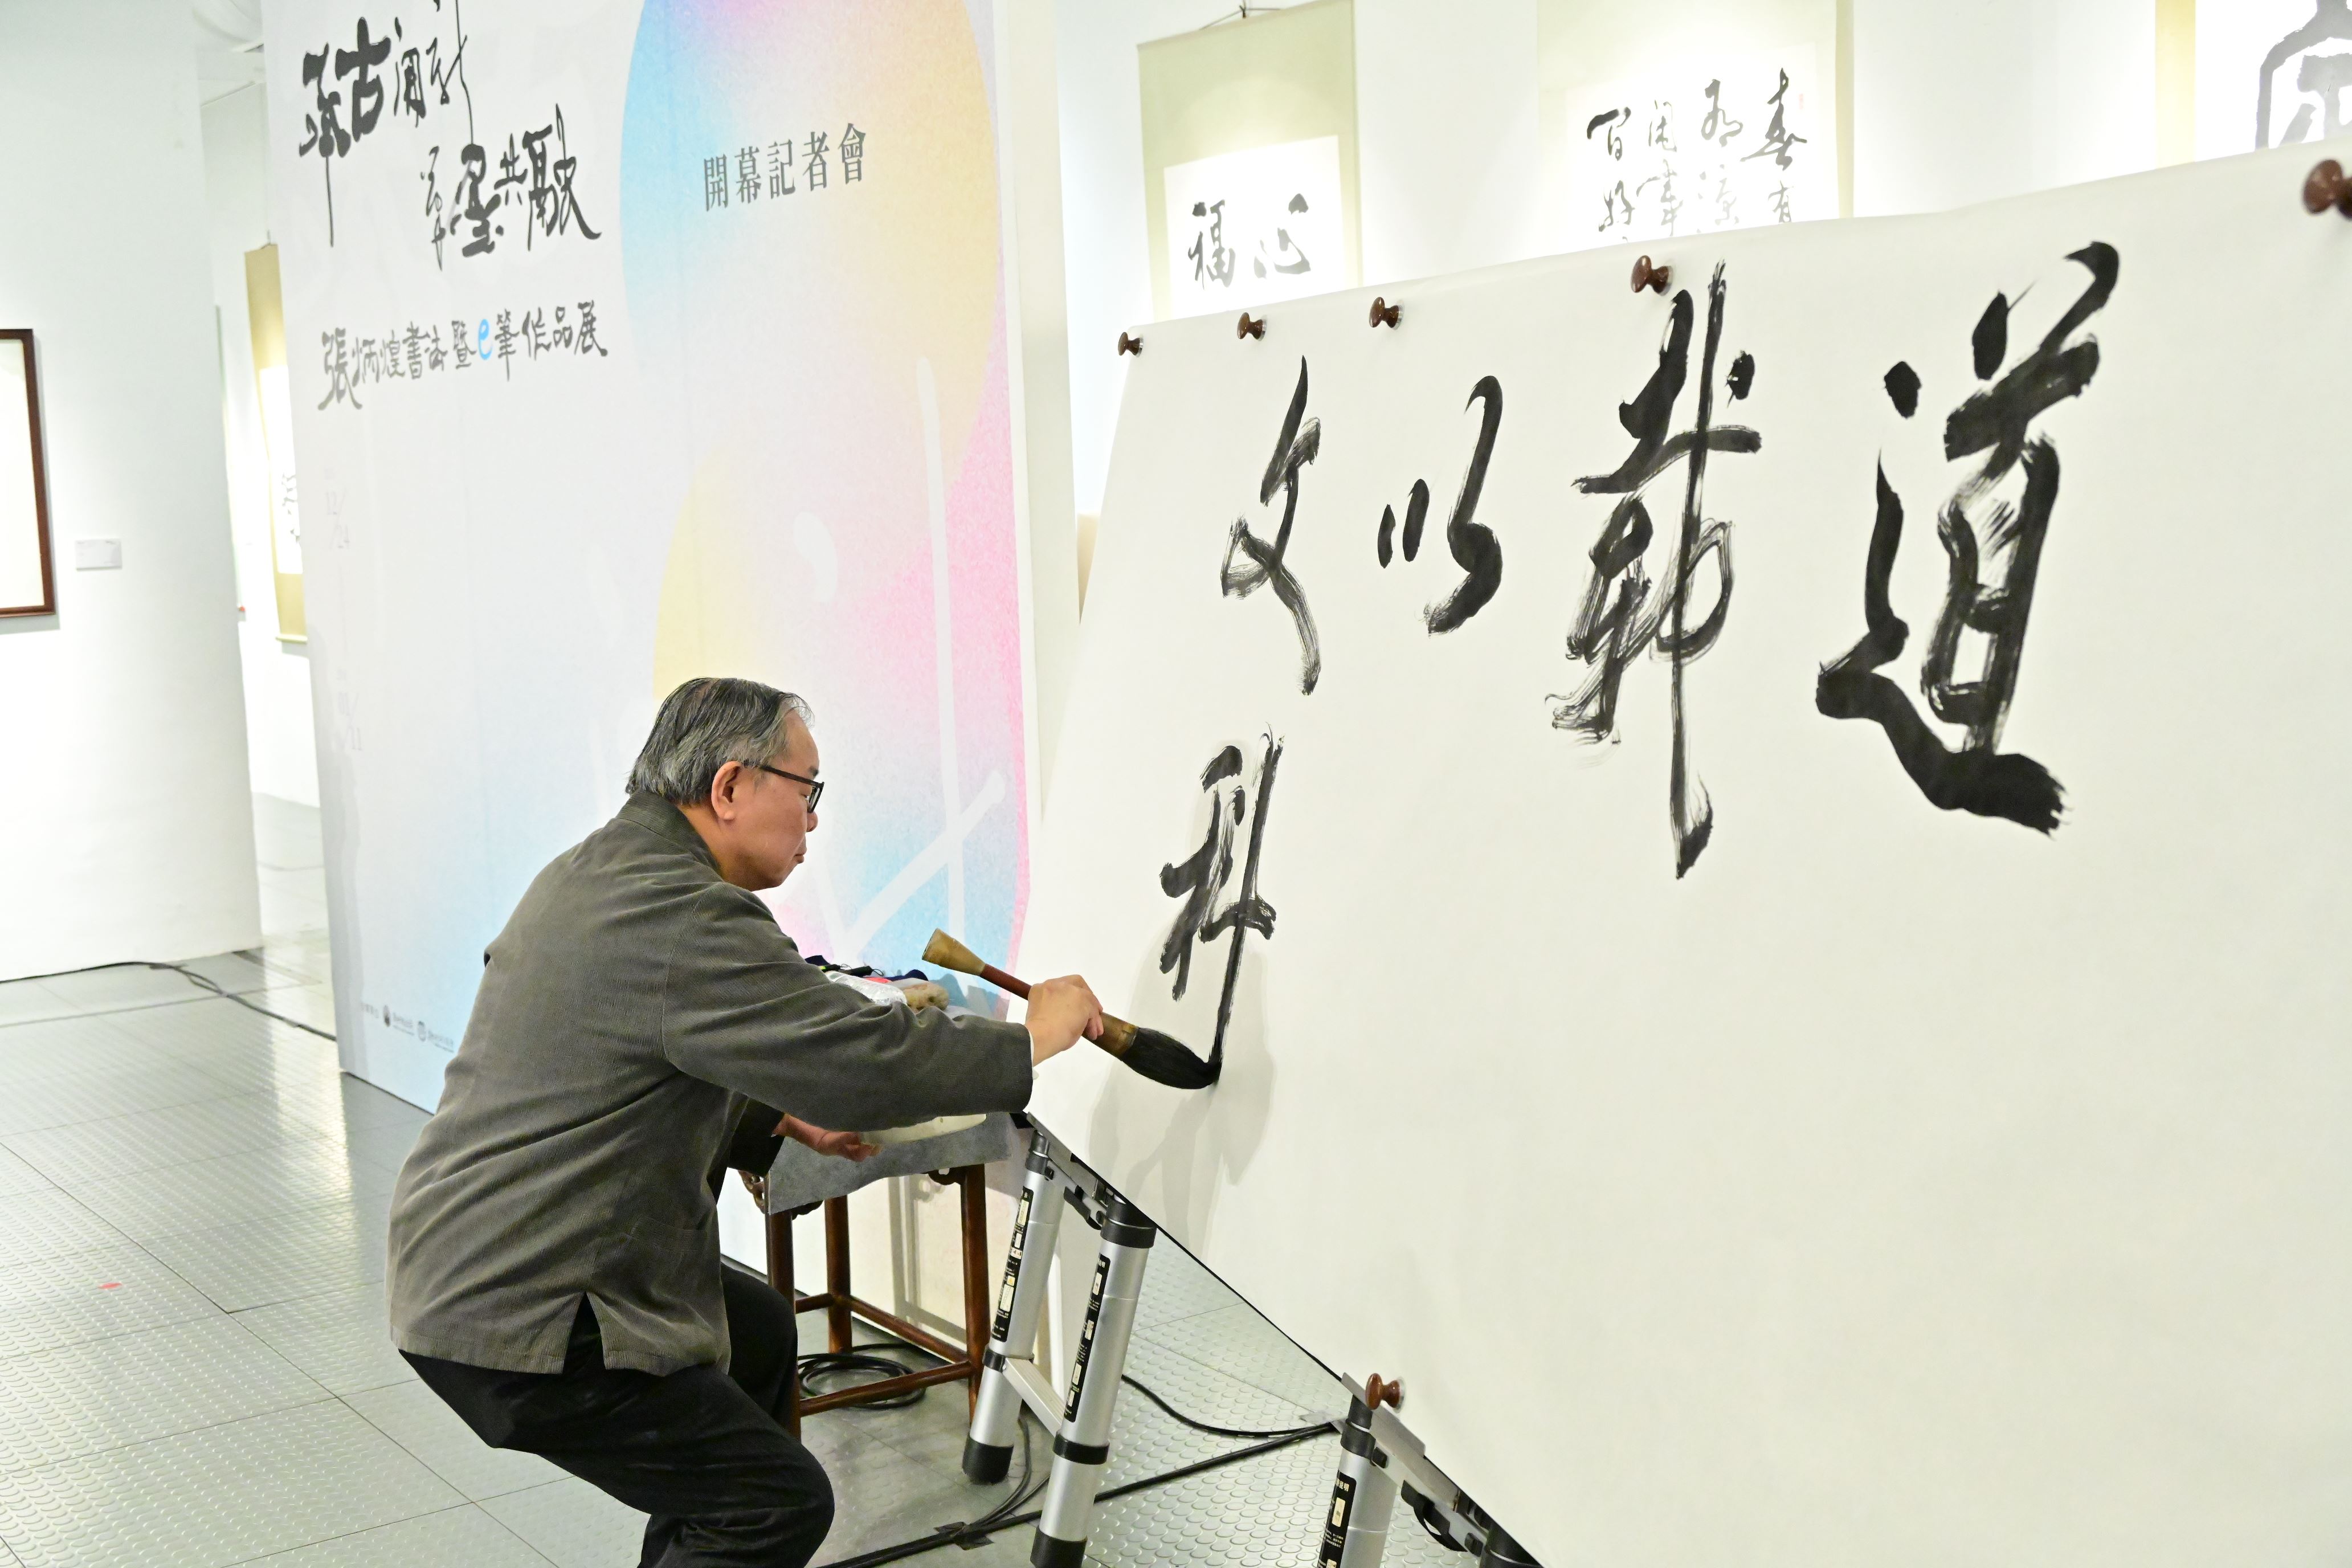 承古開新
筆墨共融
張炳煌書法暨e筆作品展
12/24
開幕記者會
心福
春有
閒事
文以載道
科